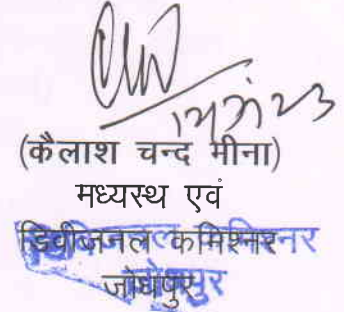 (कैलाश चन्द मीना)
मध्यस्थ एवं
डिवीजनल कमिश्नर
जोधपुर